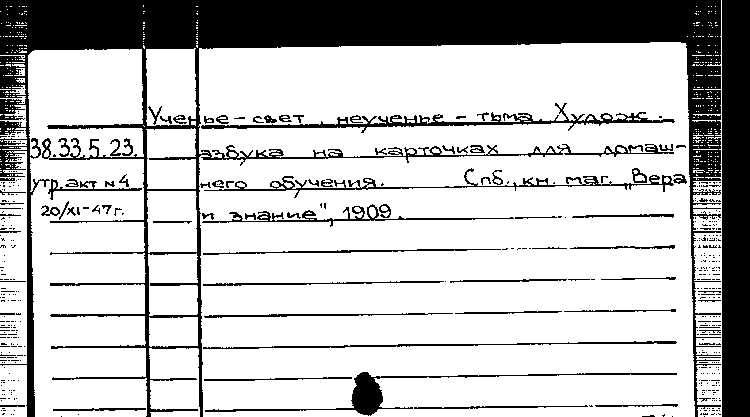 Ученье – свет, неученье – тьма. Худож.
38.33.5.23. азбука на карточках для домаш-
утр. акт №4 него обучения. Спб., кн. маг. „Вера
20/XI-47г. и знание", 1909.